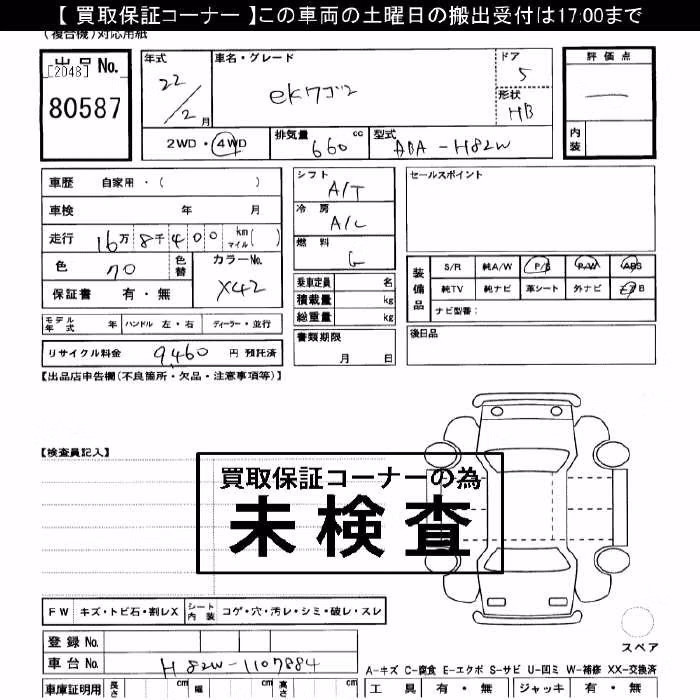 【 買取保証コーナー 】この車両の土曜日の搬出受付は17:00まで
(複合機)対応用紙
出品 No.
[2048]
80587
年式
22/2月
車名・グレード
ekワゴン
ドア
5
形状
HB
評価点
—
内装
2WD・4WD
排気量 660 cc
型式 ABA-H82W
車歴 自家用・( )
車検 年 月
走行 16万8千400 km マイル( )
色 クロ
色替
カラーNo.
X42
保証書 有・無
シフト
A/T
冷房
A/C
燃料
G
乗車定員 名
積載量 kg
総重量 kg
セールスポイント
装備品
S/R 純A/W P/S P/W ABS
純TV 純ナビ 革シート 外ナビ エアB
ナビ型番:
モデル年式 年 ハンドル 左・右 ディーラー・並行
リサイクル料金 9,460 円 預託済
書類期限
月 日
後日品
【出品店申告欄(不良箇所・欠品・注意事項等)】
【検査員記入】
買取保証コーナーの為
未検査
FW キズ・トビ石・割レX シート内装 コゲ・穴・汚レ・シミ・破レ・スレ
登録 No.
車台 No. H82W-1107884
スペア
A-キズ C-腐食 E-エクボ S-サビ U-凹ミ W-補修 XX-交換済
車庫証明用 長さ cm 幅 cm 高さ cm
工具 有・無 ジャッキ 有・無